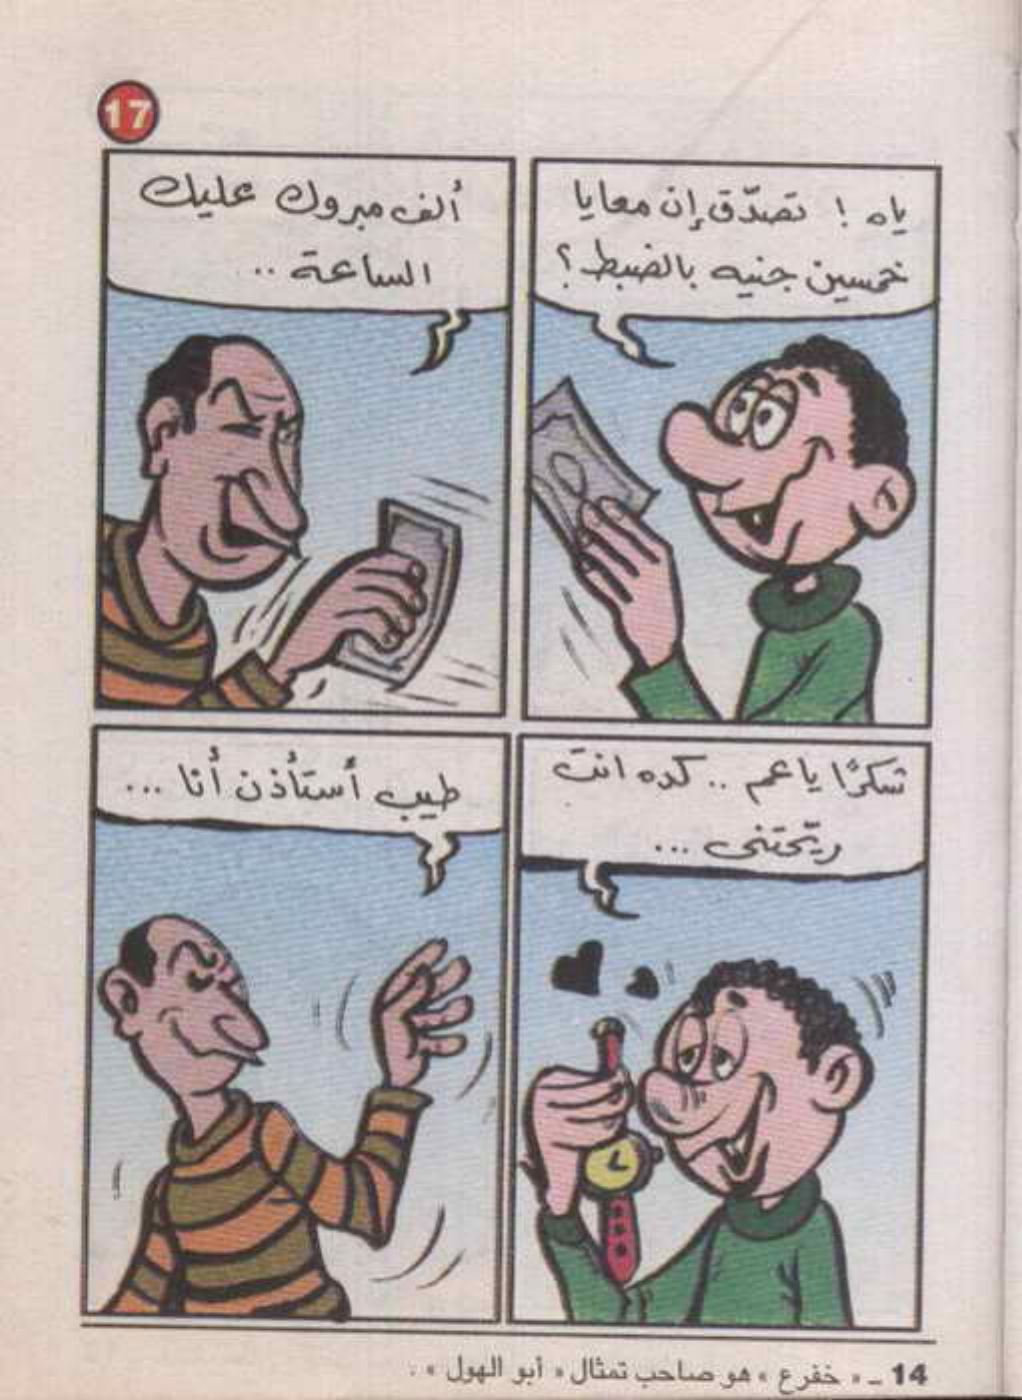 17
ياه ! تصدّق إن معايا
خمسين جنيه بالضبط ؟
ألف مبروك عليك
الساعة ..
شكرًا يا عم .. كده انت
ريّحتنى ...
طيب أستأذن أنا ...
14 ـ « خفرع » هو صاحب تمثال « أبو الهول » .